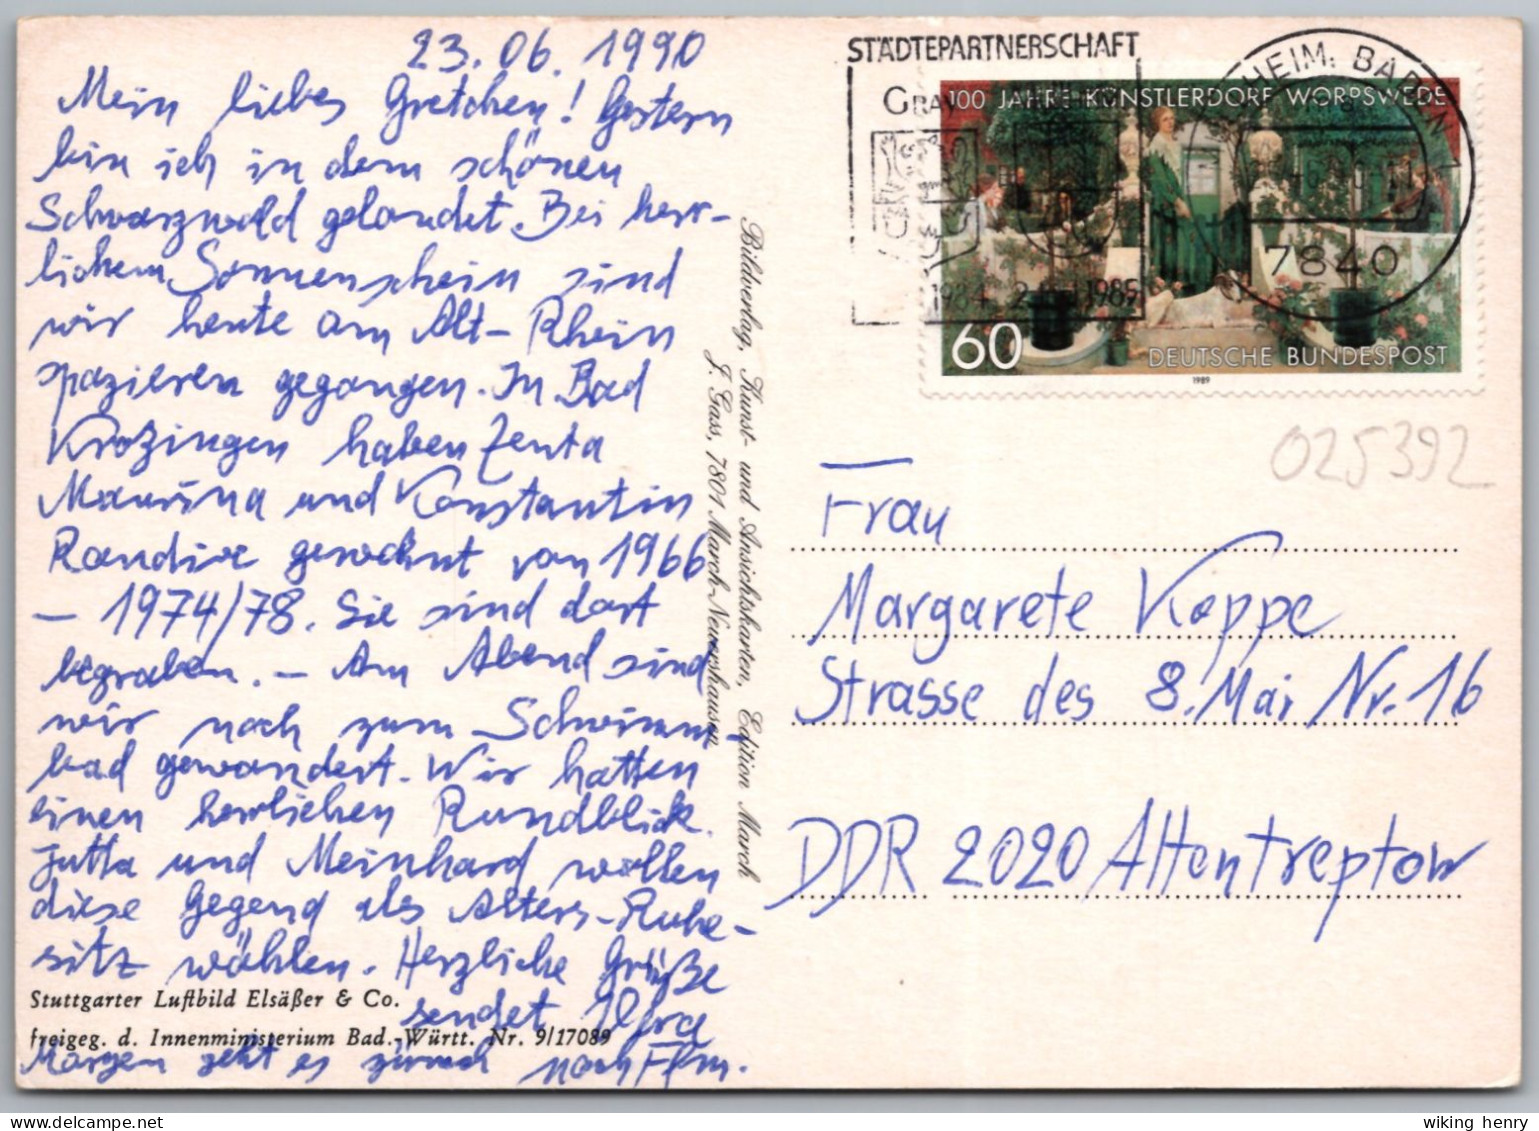 23.06.1990
Mein liebes Gretchen! Gestern
bin ich in dem schönen
Schwarzwald gelandet. Bei herr-
lichem Sonnenschein sind
wir heute am Alt-Rhein
spazieren gegangen. In Bad
Krozingen haben Zenta
Mauriņa und Konstantin
Raudive gewohnt von 1966
- 1974/78. Sie sind dort
begraben. - Am Abend sind
wir noch zum Schwimm-
bad gewandert. Wir hatten
einen herrlichen Rundblick.
Jutta und Meinhard wollen
diese Gegend als Alters-Ruhe-
sitz wählen. Herzliche Grüße
sendet
Morgen geht es zurück nach Ffm.
Stuttgarter Luftbild Elsäßer & Co.
freigeg. d. Innenministerium Bad.-Württ. Nr. 9/17089
Bildverlag, Kunst- und Ansichtskarten, Edition March
J. Gass, 7801 March-Neuershausen
STÄDTEPARTNERSCHAFT
1989
HEIM, BADEN 1
7840
100 JAHRE KÜNSTLERDORF WORPSWEDE
60
DEUTSCHE BUNDESPOST
1989
025392
Frau
Margarete Koppe
Strasse des 8. Mai Nr. 16
DDR 2020 Altentreptow
wiking henry